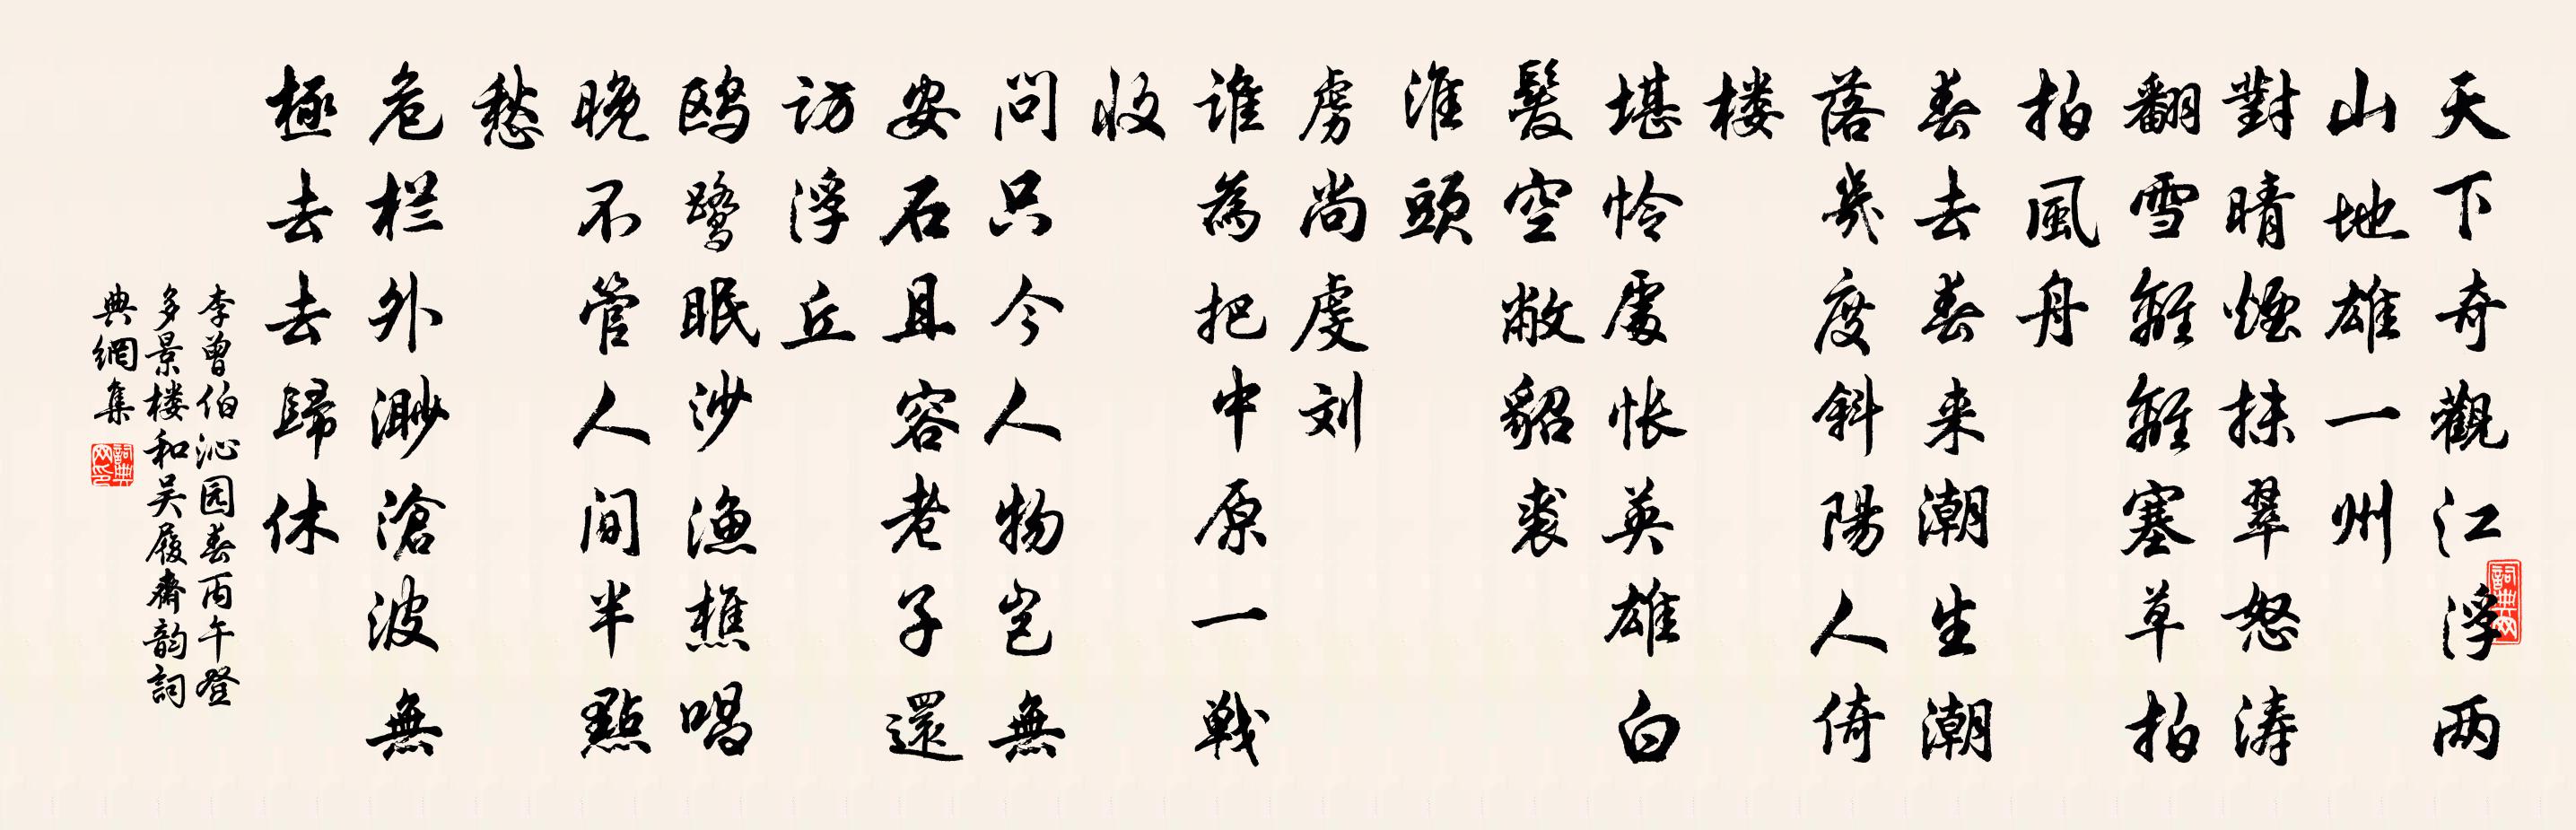 天下奇觀江浮两
山地雄一州
對晴煙抹翠怒涛
翻雪離離塞草拍
拍風舟
春去春来潮生潮
落幾度斜陽人倚
楼
堪怜處怅英雄白
髮空敝貂裘
淮頭
虜尚虔刘
谁為把中原一戰
收
问只今人物岂無
安石且容老子還
访浮丘
鸥鹭眠沙渔樵唱
晚不管人间半點
愁
危栏外渺滄波無
極去去歸休
李曾伯沁园春丙午登
多景楼和吴履齋韵詞
典網集
詞典网